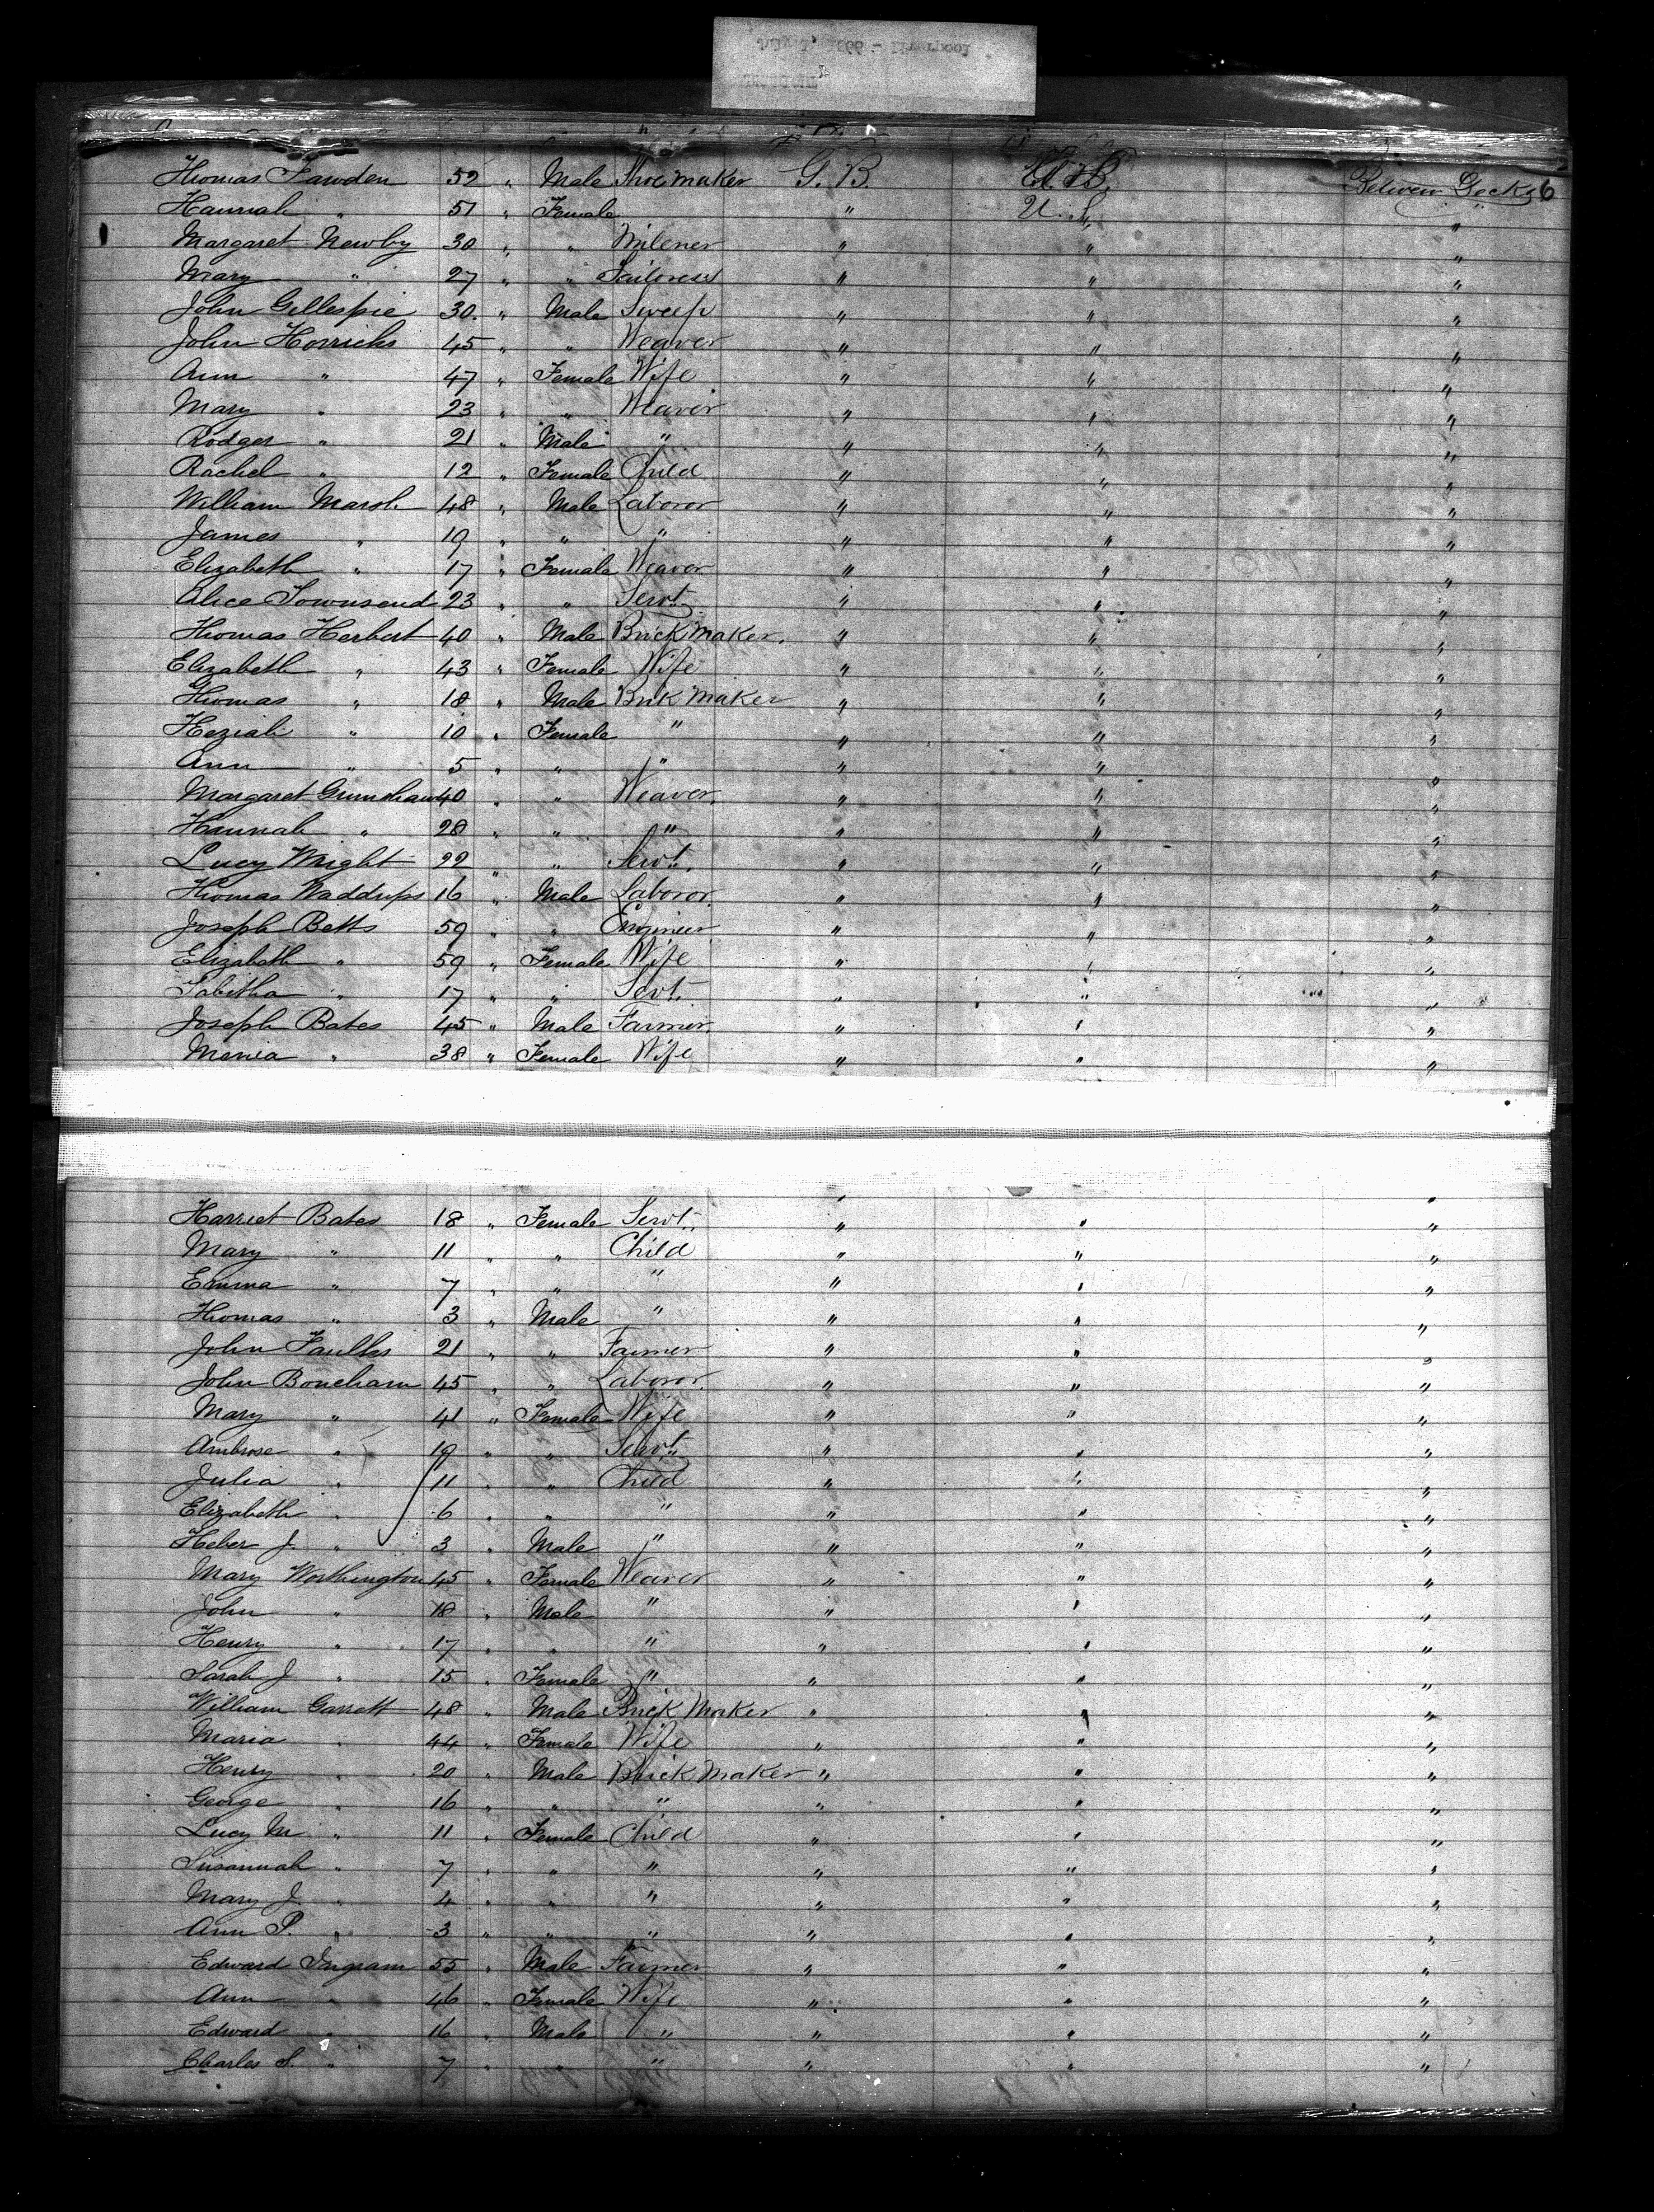 Thomas Fawden 52 " Male Shoe maker G. B. Between Decks 6
Hannah " 51 " Female " U. S. "
Margaret Newby 30 " " Milener " " "
Mary " 27 " " Tailoress " " "
John Gillespie 30. " Male Sweep " " "
John Horricks 45 " " Weaver " " "
Ann " 47 " Female Wife " " "
Mary " 23 " " Weaver " " "
Rodger " 21 " Male " " " "
Rachel " 12 " Female Child " " "
William Marsh 48 " Male Laboror " " "
James " 19 " " " " " "
Elizabeth " 17 " Female Weaver " " "
Alice Townsend 23 " " Servt. " " "
Thomas Herbert 40 " Male Brick maker. " " "
Elizabeth " 43 " Female Wife " " "
Thomas " 18 " Male Brik maker " " "
Keziah " 10 " Female " " " "
Ann " 5 " " " " " "
Margaret Grimshaw 40 " " Weaver. " " "
Hannah " 28 " " " " " "
Lucy Wright 22 " " Servt. " " "
Thomas Waddrips 16 " Male Laboror. " " "
Joseph Betts 59 " " Engineer " " "
Elizabeth " 59 " Female Wife " " "
Tabitha " 17 " " Servt. " " "
Joseph Bates 45 " Male Farmer " " "
" 38 " Female Wife " " "
Harriet Bates 18 " Female Servt. " " "
Mary " 11 " " Child " " "
Emma " 7 " " " " " "
Thomas " 3 " Male " " " "
John Faulks 21 " " Farmer " " "
John Boneham 45 " " Laboror. " " "
Mary " 41 " Female Wife " " "
Ambrose " 19 " " Servt. " " "
Julia " 11 " " Child " " "
Elizabeth " 6 " " " " " "
Heber J. " 3 " Male " " " "
Mary Worthington 45 " Female Weaver " " "
John " 18 " Male " " " "
Henry " 17 " " " " " "
Sarah J " 15 " Female " " " "
William Garrett 48 " Male Brick Maker " " "
Maria " 44 " Female Wife " " "
Henry " 20 " Male Brick maker " " "
George " 16 " " " " " "
Lucy M " 11 " Female Child " " "
Susannah " 7 " " " " " "
Mary J. " 4 " " " " " "
Ann P. " 3 " " " " " "
Edward Ingram 55 " Male Farmer " " "
Ann " 46 " Female Wife " " "
Edward " 16 " Male " " " "
Charles S. " 7 " " " " " "